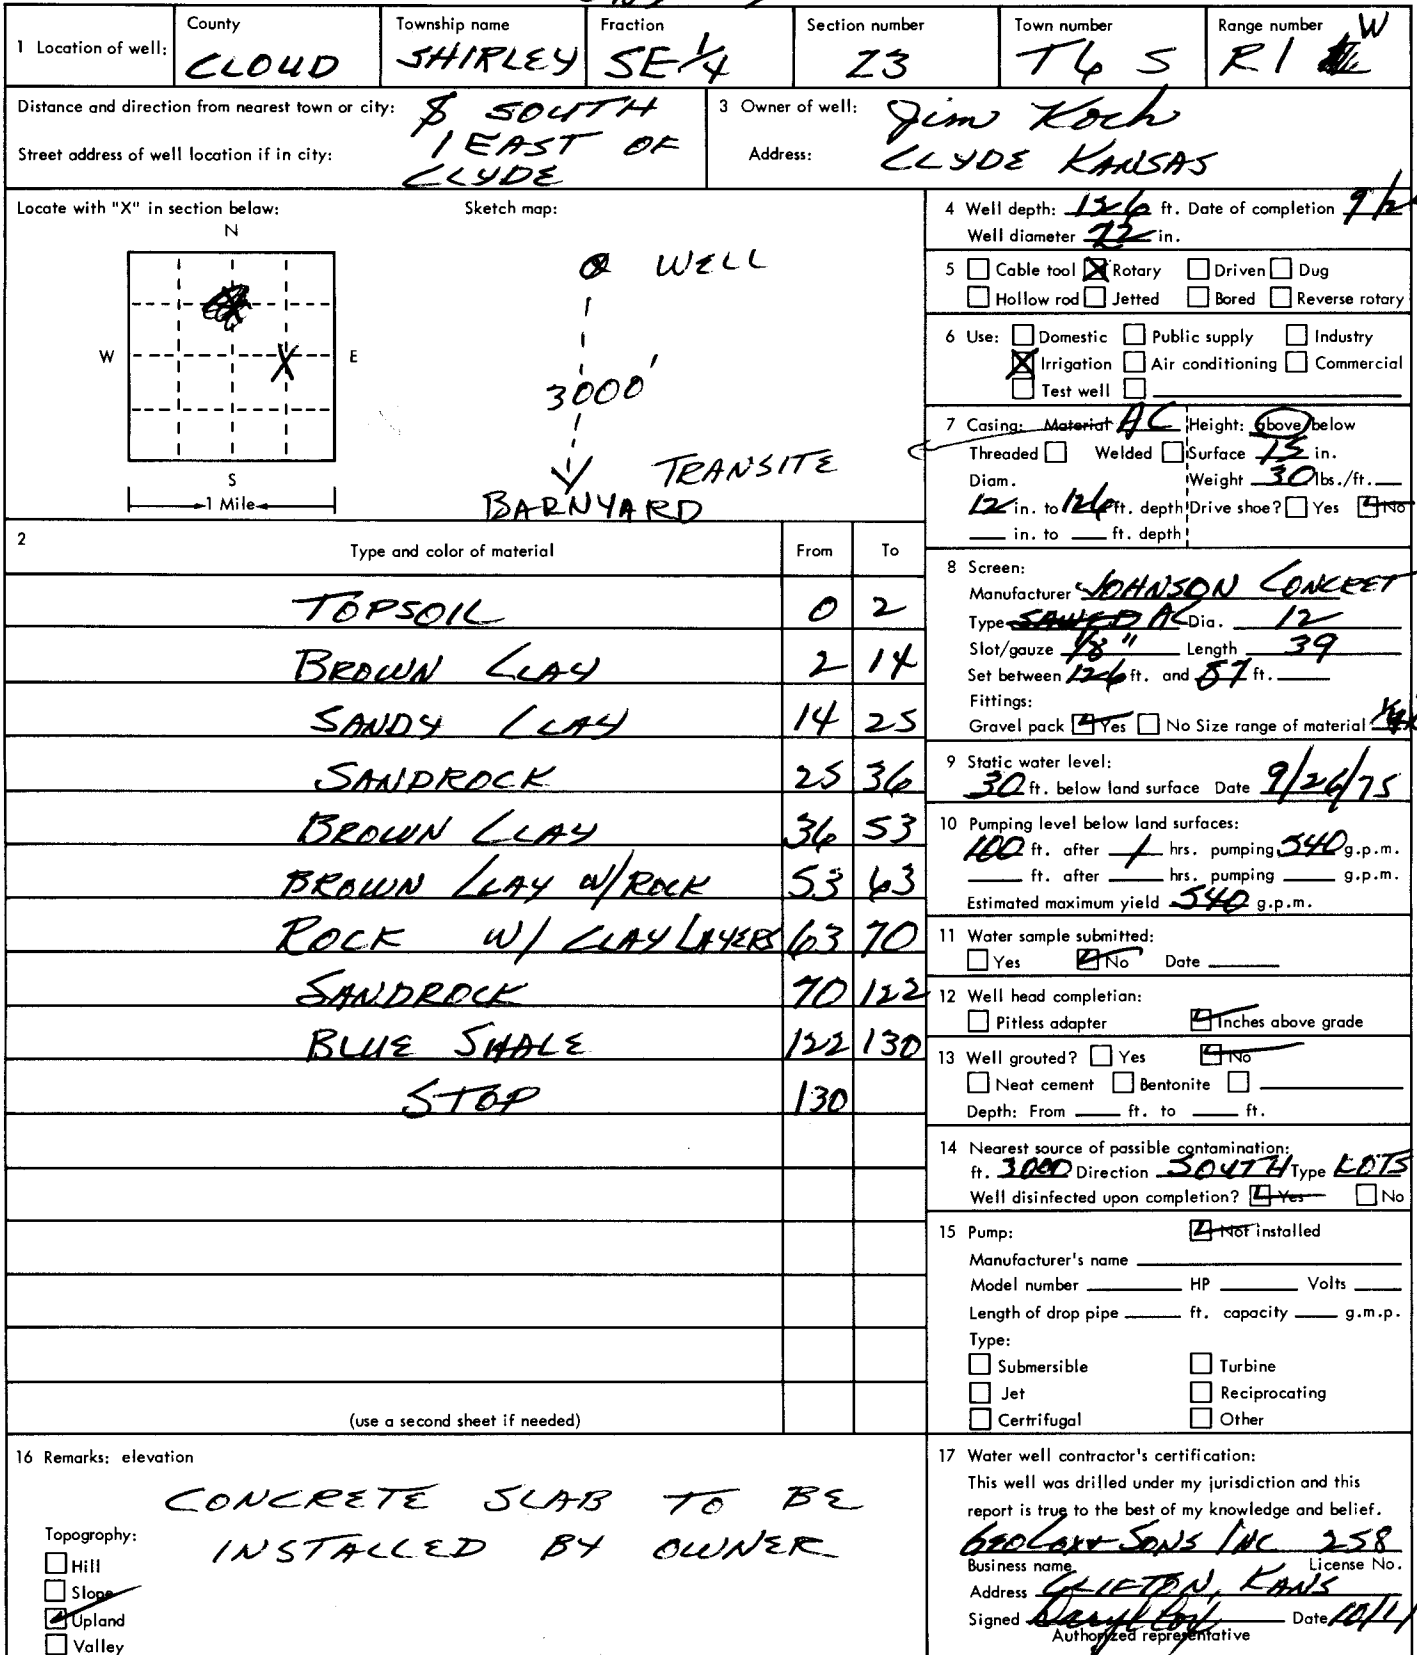 1 Location of well: County CLOUD Township name SHIRLEY Fraction SE 1/4 Section number 23 Town number T6 S Range number R1 W
Distance and direction from nearest town or city: 8 SOUTH
1 EAST OF
Street address of well location if in city: CLYDE
3 Owner of well: Jim Koch
Address: CLYDE KANSAS
Locate with "X" in section below: Sketch map:
N
W E
S
1 Mile
X
WELL
3000'
TRANSITE
BARNYARD
2 Type and color of material From To
TOPSOIL 0 2
BROWN CLAY 2 14
SANDY CLAY 14 25
SANDROCK 25 36
BROWN CLAY 36 53
BROWN CLAY W/ROCK 53 63
ROCK W/ CLAY LAYERS 63 70
SANDROCK 70 122
BLUE SHALE 122 130
STOP 130
(use a second sheet if needed)
4 Well depth: 126 ft. Date of completion
Well diameter in.
5 Cable tool X Rotary Driven Dug
Hollow rod Jetted Bored Reverse rotary
6 Use: Domestic Public supply Industry
X Irrigation Air conditioning Commercial
Test well
7 Casing: Material AC Height: above/below
Threaded Welded Surface 15 in.
Diam. Weight 30 lbs./ft.
12 in. to 126 ft. depth Drive shoe? Yes No
in. to ft. depth
8 Screen:
Manufacturer JOHNSON CONCRET
Type SAWED AC Dia. 12
Slot/gauze 1/8" Length 39
Set between 126 ft. and 87 ft.
Fittings:
Gravel pack Yes No Size range of material
9 Static water level:
30 ft. below land surface Date 9/26/75
10 Pumping level below land surfaces:
100 ft. after 1 hrs. pumping 540 g.p.m.
ft. after hrs. pumping g.p.m.
Estimated maximum yield 540 g.p.m.
11 Water sample submitted:
Yes No Date
12 Well head completion:
Pitless adapter Inches above grade
13 Well grouted? Yes No
Neat cement Bentonite
Depth: From ft. to ft.
14 Nearest source of possible contamination:
ft. 3000 Direction SOUTH Type LOTS
Well disinfected upon completion? Yes No
15 Pump: Not installed
Manufacturer's name
Model number HP Volts
Length of drop pipe ft. capacity g.m.p.
Type:
Submersible Turbine
Jet Reciprocating
Certrifugal Other
16 Remarks: elevation
CONCRETE SLAB TO BE
INSTALLED BY OWNER
Topography:
Hill
Slope
Upland
Valley
17 Water well contractor's certification:
This well was drilled under my jurisdiction and this
report is true to the best of my knowledge and belief.
SONS INC 258
Business name License No.
Address CLIFTON, KANS
Signed Daryl Date 10/1/
Authorized representative